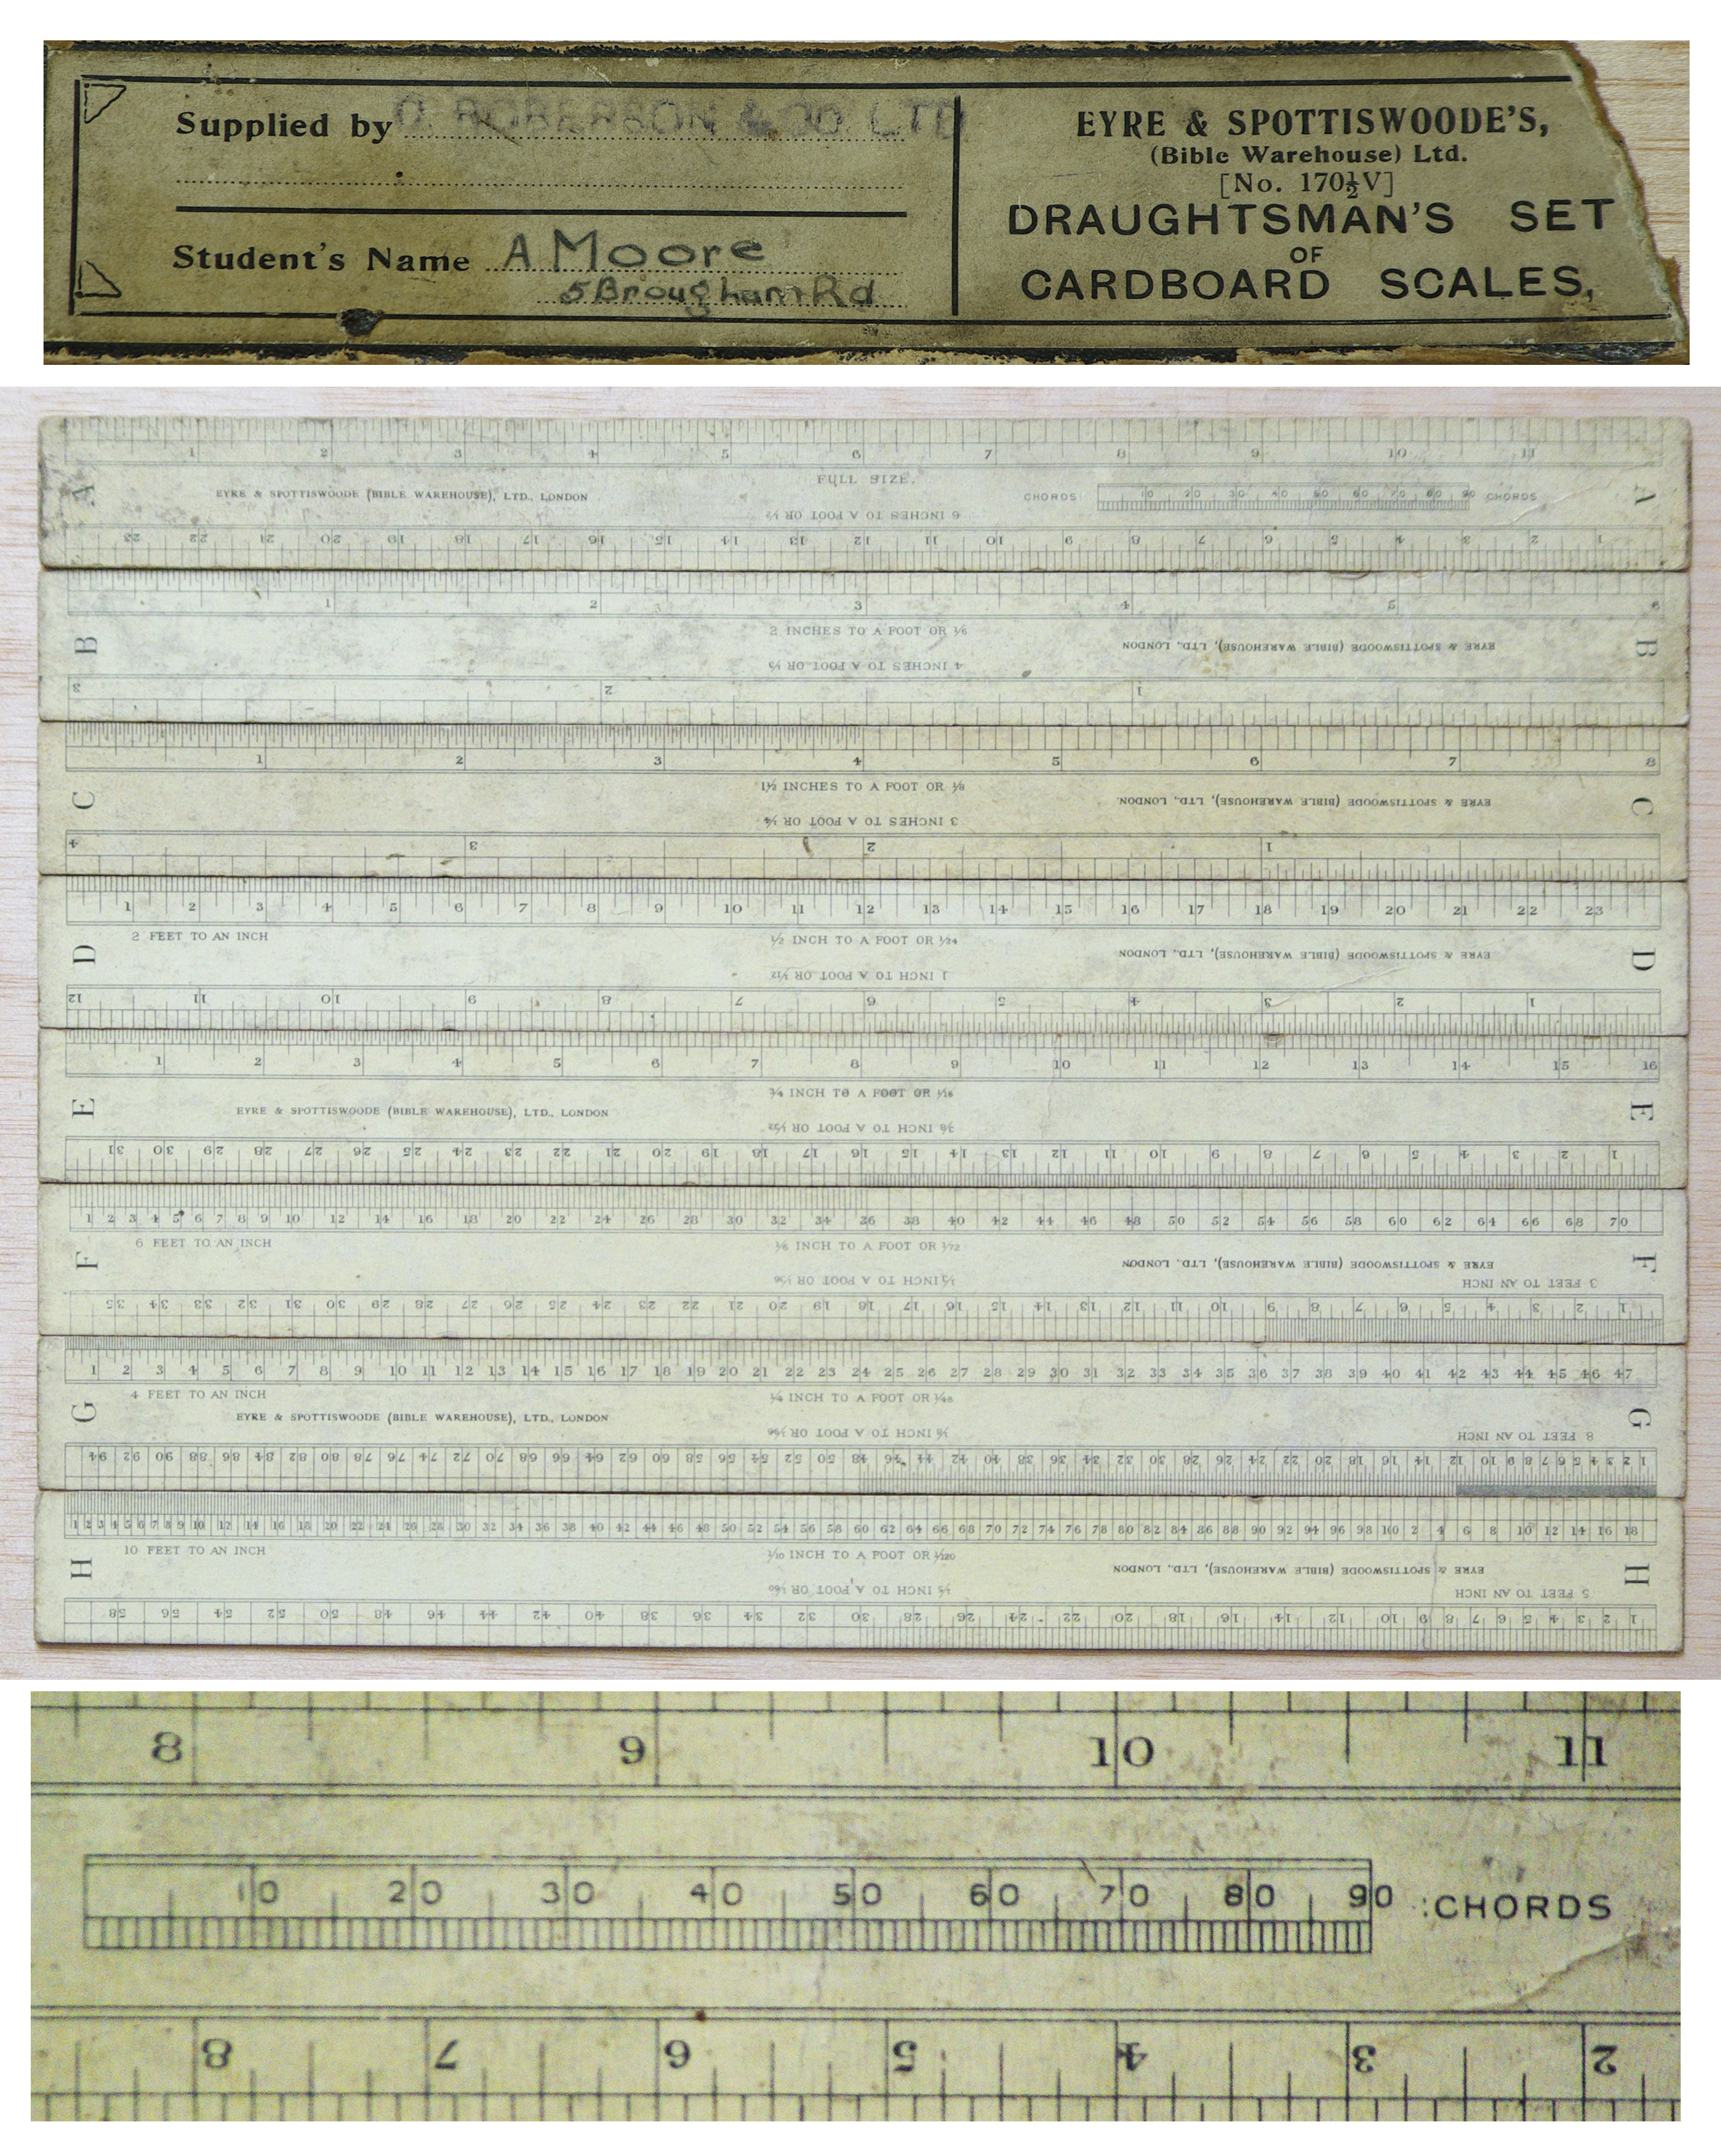 Supplied by
EYRE & SPOTTISWOODE'S,
(Bible Warehouse) Ltd.
[No. 170½V]
DRAUGHTSMAN'S SET
OF
CARDBOARD SCALES,
Student's Name A Moore
5 Brougham Rd
1 2 3 4 5 6 7 8 9 10 11
A FULL SIZE. A
EYRE & SPOTTISWOODE (BIBLE WAREHOUSE), LTD., LONDON
CHORDS 10 20 30 40 50 60 70 80 90 CHORDS
6 INCHES TO A FOOT OR ½
23 22 21 20 19 18 17 16 15 14 13 12 11 10 9 8 7 6 5 4 3 2 1
1 2 3 4 5 6
B 2 INCHES TO A FOOT OR ⅙ B
EYRE & SPOTTISWOODE (BIBLE WAREHOUSE), LTD., LONDON
4 INCHES TO A FOOT OR ⅓
3 2 1
1 2 3 4 5 6 7 8
C 1½ INCHES TO A FOOT OR ⅛ C
EYRE & SPOTTISWOODE (BIBLE WAREHOUSE), LTD., LONDON.
3 INCHES TO A FOOT OR ¼
4 3 2 1
1 2 3 4 5 6 7 8 9 10 11 12 13 14 15 16 17 18 19 20 21 22 23
2 FEET TO AN INCH ½ INCH TO A FOOT OR 1/24
D EYRE & SPOTTISWOODE (BIBLE WAREHOUSE), LTD., LONDON D
1 INCH TO A FOOT OR 1/12
12 11 10 9 8 7 6 5 4 3 2 1
1 2 3 4 5 6 7 8 9 10 11 12 13 14 15 16
¾ INCH TO A FOOT OR 1/16
E EYRE & SPOTTISWOODE (BIBLE WAREHOUSE), LTD., LONDON E
⅜ INCH TO A FOOT OR 1/32
31 30 29 28 27 26 25 24 23 22 21 20 19 18 17 16 15 14 13 12 11 10 9 8 7 6 5 4 3 2 1
1 2 3 4 5 6 7 8 9 10 12 14 16 18 20 22 24 26 28 30 32 34 36 38 40 42 44 46 48 50 52 54 56 58 60 62 64 66 68 70
6 FEET TO AN INCH ⅙ INCH TO A FOOT OR 1/72
F EYRE & SPOTTISWOODE (BIBLE WAREHOUSE), LTD., LONDON F
⅓ INCH TO A FOOT OR 1/36 3 FEET TO AN INCH
35 34 33 32 31 30 29 28 27 26 25 24 23 22 21 20 19 18 17 16 15 14 13 12 11 10 9 8 7 6 5 4 3 2 1
1 2 3 4 5 6 7 8 9 10 11 12 13 14 15 16 17 18 19 20 21 22 23 24 25 26 27 28 29 30 31 32 33 34 35 36 37 38 39 40 41 42 43 44 45 46 47
4 FEET TO AN INCH ¼ INCH TO A FOOT OR 1/48
G EYRE & SPOTTISWOODE (BIBLE WAREHOUSE), LTD., LONDON G
⅛ INCH TO A FOOT OR 1/96 8 FEET TO AN INCH
94 92 90 88 86 84 82 80 78 76 74 72 70 68 66 64 62 60 58 56 54 52 50 48 46 44 42 40 38 36 34 32 30 28 26 24 22 20 18 16 14 12 10 9 8 7 6 5 4 3 2 1
1 2 3 4 5 6 7 8 9 10 12 14 16 18 20 22 24 26 28 30 32 34 36 38 40 42 44 46 48 50 52 54 56 58 60 62 64 66 68 70 72 74 76 78 80 82 84 86 88 90 92 94 96 98 100 2 4 6 8 10 12 14 16 18
10 FEET TO AN INCH 1/10 INCH TO A FOOT OR 1/120
H EYRE & SPOTTISWOODE (BIBLE WAREHOUSE), LTD., LONDON H
⅕ INCH TO A FOOT OR 1/60 5 FEET TO AN INCH
58 56 54 52 50 48 46 44 42 40 38 36 34 32 30 28 26 24 22 20 18 16 14 12 10 9 8 7 6 5 4 3 2 1
8 9 10 11
10 20 30 40 50 60 70 80 90 :CHORDS
8 7 6 5 4 3 2